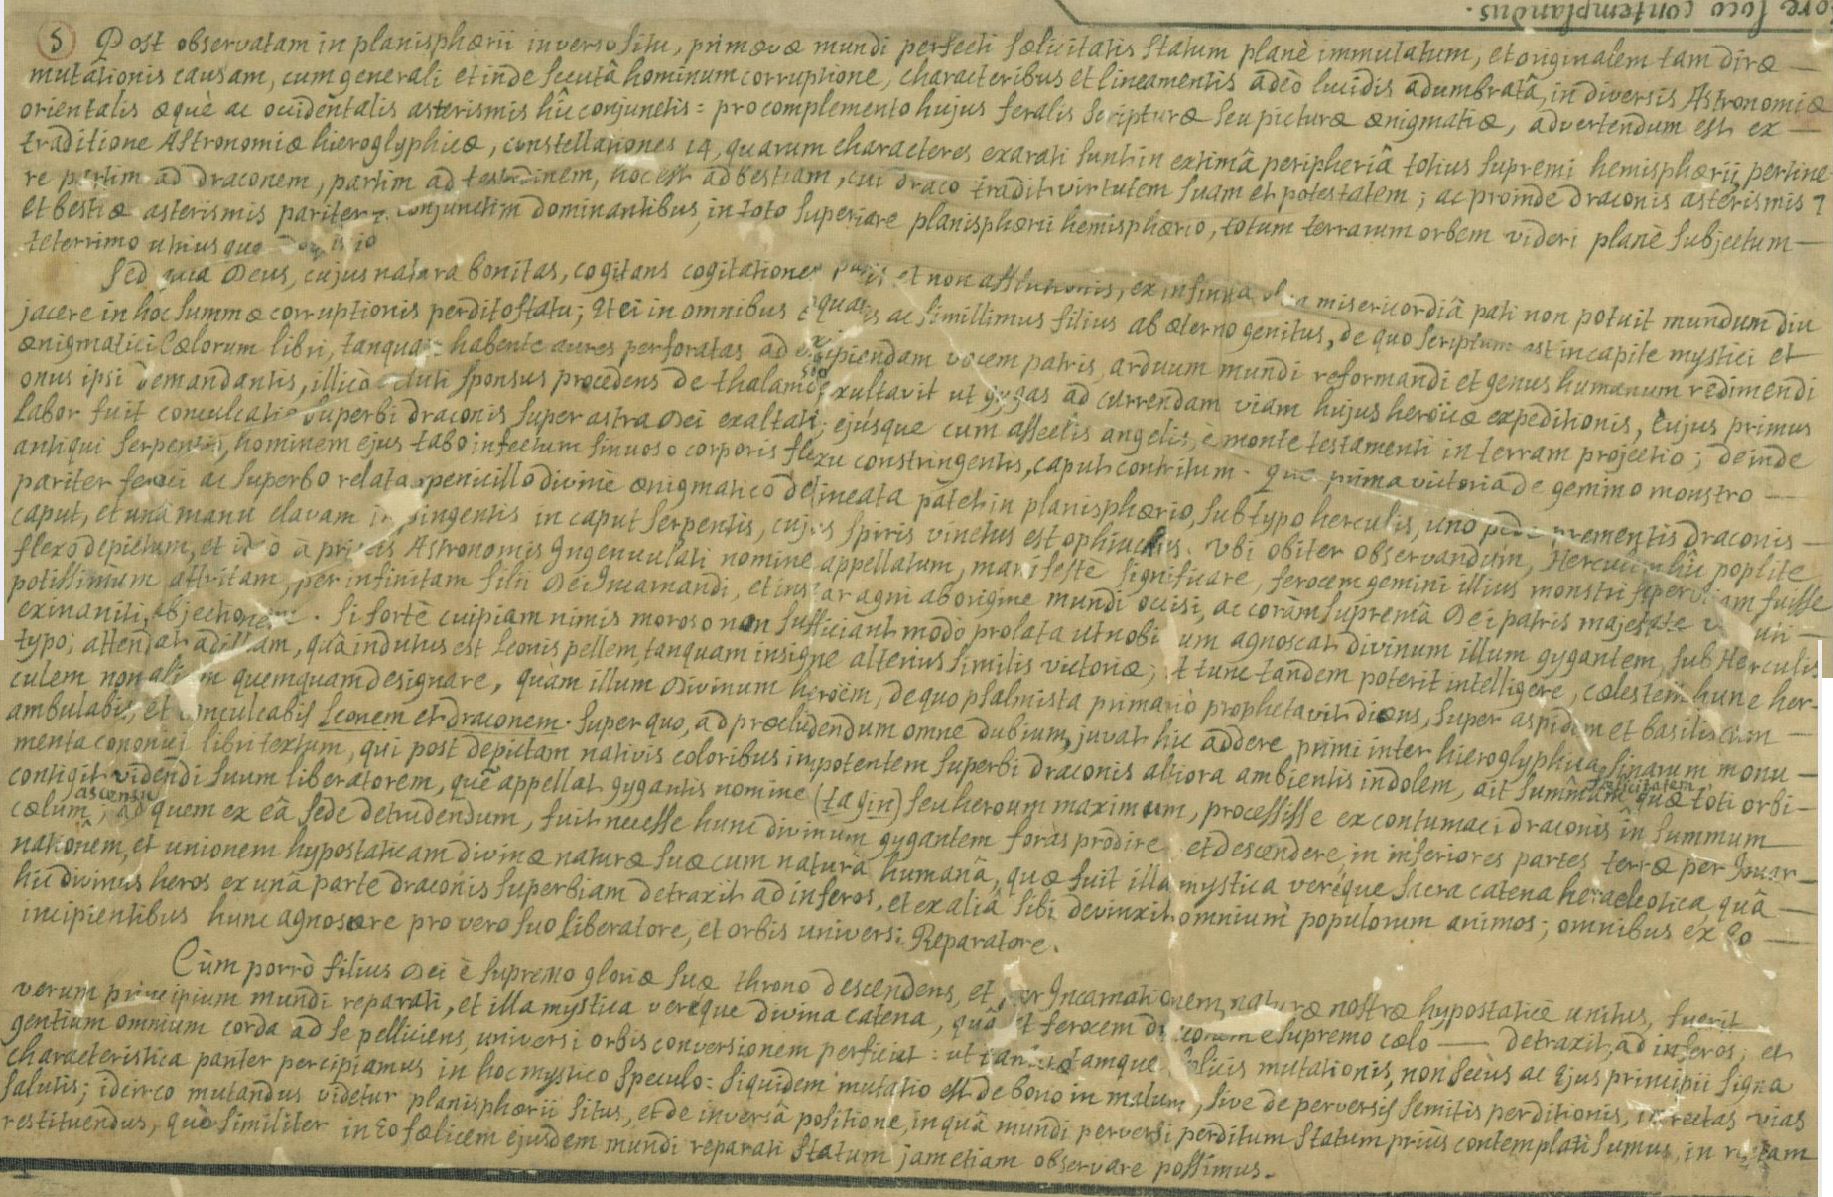 ore loco contemplandus.
5 Post observatam in planisphærii inverso situ, primævæ mundi perfecti fœlicitatis statum planè immutatum, et originalem tam diræ —
mutationis causam, cum generali et inde secutâ hominum corruptione, characteribus et lineamentis adeò lucidis adumbratâ, in diversis Astronomiæ
orientalis æquè ac occidentalis asterismis hîc conjunctis: pro complemento hujus feralis scripturæ seu picturæ ænigmatiæ, advertendum est ex —
traditione Astronomiæ hieroglyphicæ, constellationes 14, quarum characteres exarati sunt in extimâ peripheriâ totius supremi hemisphærii, pertine-
re partim ad draconem, partim ad testudinem, hoc est ad bestiam, cui draco tradit virtutem suam et potestatem; ac proinde draconis asterismis
et bestiæ asterismis pariter conjunctim dominantibus, in toto superiore planisphærii hemisphærio, totum terrarum orbem videri planè subjectum —
teterrimo utriusque
Sed quia Deus, cujus natura bonitas, cogitans cogitationes pacis et non afflictionis, ex infinita sua misericordiâ pati non potuit mundum diu
jacere in hoc summæ corruptionis perdito statu; et ei in omnibus æqualis ac simillimus filius ab æterno genitus, de quo scriptum est in capite mystici et
ænigmatici cœlorum libri, tanquam habente aures perforatas ad excipiendam vocem patris, arduum mundi reformandi et genus humanum redimendi
onus ipsi demandantis, illicò veluti sponsus procedens de thalamo suo exultavit ut gygas ad currendam viam hujus heroicæ expeditionis, cujus primus
labor fuit conculcatio superbi draconis super astra Dei exaltati; ejúsque cum asseclis angelis, è monte testamenti in terram projectio; deinde
antiqui serpentis, hominem ejus tabo infectum sinuoso corporis flexu constringentis, caput contritum. Quæ prima victoria de gemino monstro —
pariter feroci ac superbo relata, penicillo divinè ænigmatico delineata patet in planisphærio, sub typo herculis, uno pede prementis draconis —
caput, et unâ manu clavam impingentis in caput serpentis, cujus spiris vinctus est ophiuchus. Ubi obiter observandum, Herculem hîc poplite
flexo depictum, et ideò à priscis Astronomis Ingenuulati nomine appellatum, manifestè significare, ferocem gemini illius monstri superbiam fuisse
potissimum attritam, per infinitam filii Dei Incarnandi, et instar agni ab origine mundi occisi, ac coràm supremâ Dei patris majestate
exinaniti, abjectionem. Si fortè cuipiam nimis moroso non sufficiant modò prolata ut nobiscum agnoscat divinum illum gygantem, sub Herculis
typo; attendat ad illam, quâ indutus est Leonis pellem, tanquam insigne alterius similis victoriæ; et tunc tandem poterit intelligere, cœlestem hunc her-
culem non alium quemquam designare, quàm illum Divinum heröem, de quo psalmista primariò prophetavit dicens, super aspidem et basiliscum —
ambulabis, et conculcabis Leonem et draconem. Super quo, ad præcludendum omne dubium, juvat hîc addere primi inter hieroglyphica sinarum monu —
menta cononici libri textum, qui post depictam nativis coloribus impotentem superbi draconis altiora ambientis indolem, ait summam fœlicitatem, quæ toti orbi —
contigit videndi suum liberatorem, quẽ appellat gygantis nomine (ta gin) seu heroum maximum, processisse ex contumaci draconis in summum
cœlum ascensu; ad quem ex eâ sede detrudendum, fuit necesse hunc divinum gygantem foràs prodire et descendere in inferiores partes terræ per Incar —
nationem, et unionem hypostaticam divinæ naturæ suæ cum naturâ humanâ, quæ fuit illa mystica veréque sacra catena heracleotica, quâ —
hic divinus heros ex unâ parte draconis superbiam detraxit ad inferos, et ex aliâ sibi devinxit omnium populorum animos; omnibus ex eo —
incipientibus hunc agnoscere pro vero suo liberatore, et orbis universi Reparatore.
Cùm porrò filius Dei è supremo gloriæ suæ throno descendens, et per Incarnationem naturæ nostræ hypostaticè unitus, fuerit
verum principium mundi reparati, et illa mystica veréque divina catena, quâ et ferocem draconem è supremo cœlo — detraxit ad inferos; et
gentium omnium corda ad se pelliciens, universi orbis conversionem perficiat: ut tantæ tamque fœlicis mutationis, non secùs ac ejus principii signa
characteristica pariter percipiamus in hoc mystico speculo: siquidem mutatio est de bono in malum, sive de perversis semitis perditionis, in rectas vias
salutis; idcirco mutandus videtur planisphærii situs, et de inversâ positione, in quâ mundi perversi perditum statum priùs contemplati sumus, in rectam
restituendus, quò similiter in eo fœlicem ejusdem mundi reparati statum jam etiam observare possimus.